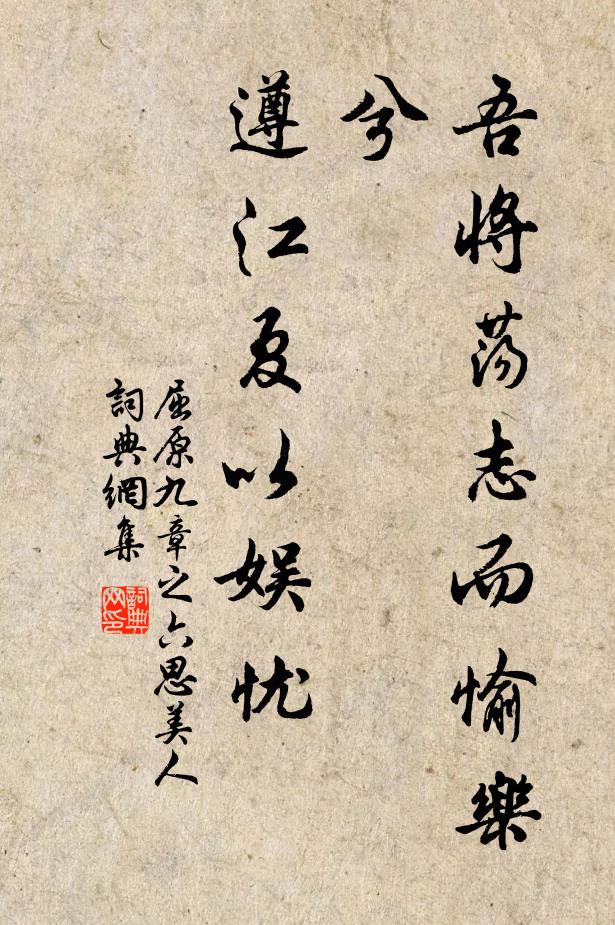 吾将荡志而愉樂
兮
遵江夏以娱忧
屈原九章之六思美人
詞典網集
詞典网印